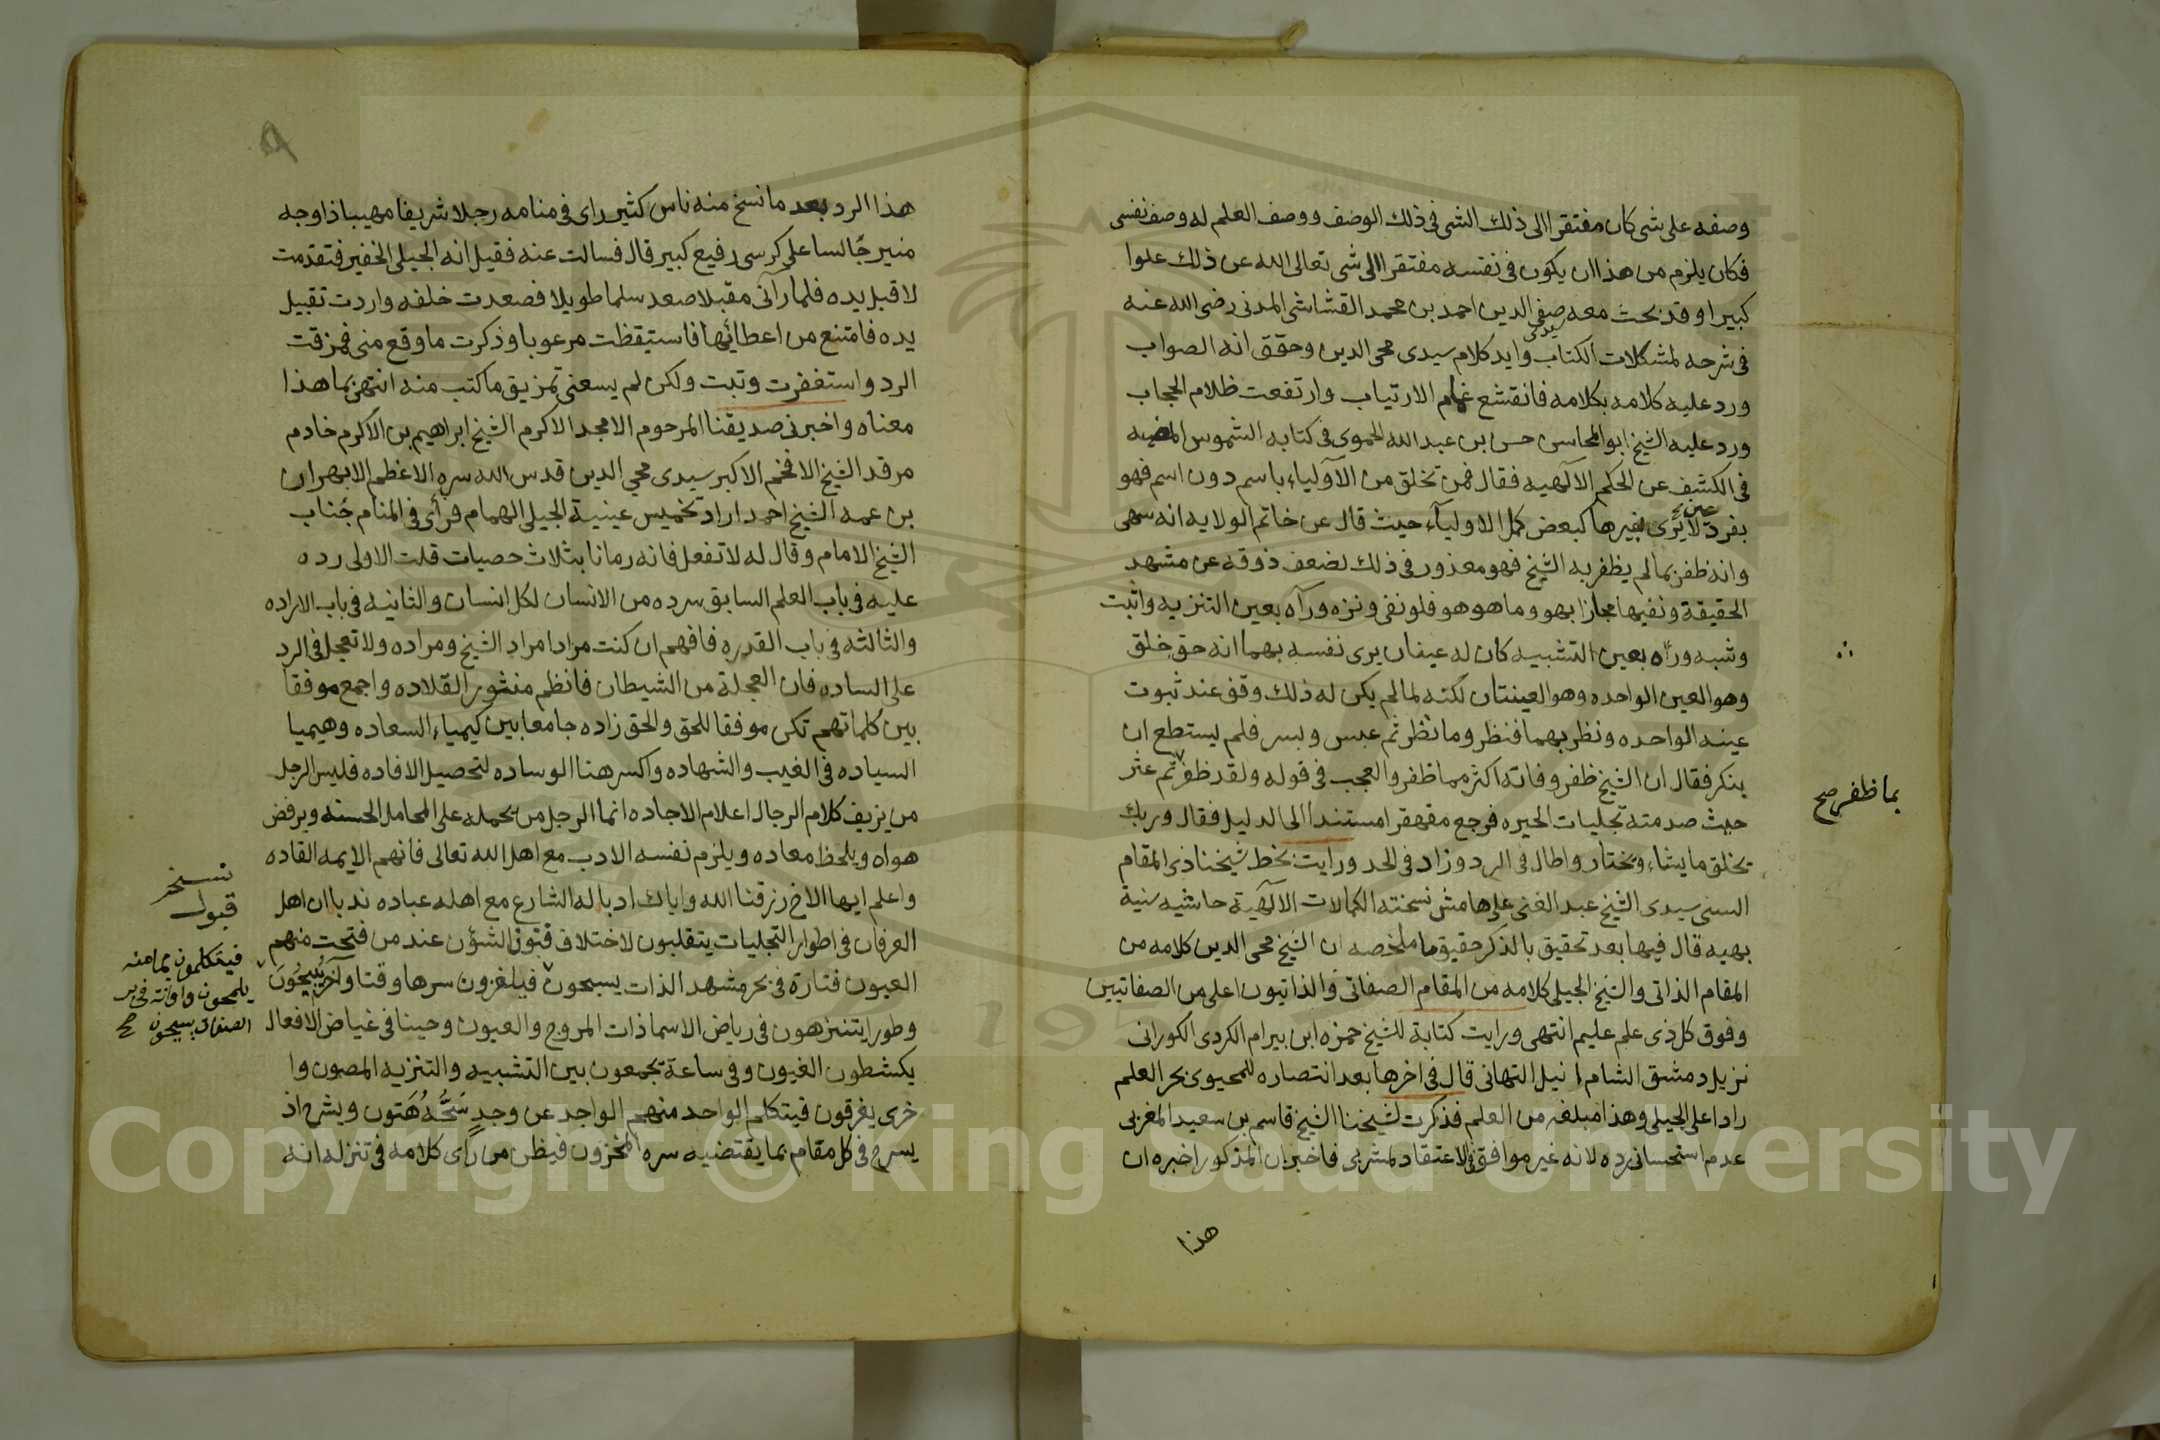 وصفه على شى كان مفتقرا الى ذلك الشى فى ذلك الوصف ووصف العلم له وصف نفسى
فكان يلزم من هذا ان يكون فى نفسه مفتقرا الى شى تعالى الله عن ذلك علوا
كبيرا وقد بحث معه صفى الدين احمد بن محمد القشاشى المدنى رضى الله عنه
فى شرحه لمشكلات الكتاب وايد كلام سيدى محى الدين وحقق انه الصواب
ورد عليه كلامه بكلامه فانقشع غمام الارتياب وارتفعت ظلام الحجاب
ورد عليه الشيخ ابو المحاسن حسن بن عبد الله الحموى فى كتابه الشموس المضيه
فى الكشف عن الحكم الالهيه فقال فمن تخلق من الاولياء باسم دون اسم فهو
بفرد عين لا يرى بغيرها كبعض كمل الاولياء حيث قال عن خاتم الولايه انه سهى
وانه ظفر بما لم يظفر به الشيخ فهو معذور فى ذلك لضعف ذوقه عن مشهد
الحقيقة ونفيها مجازا بهو وما هو هو فلو نفى ونزه ورآه بعين التنزيه واثبت
وشبه ورآه بعين التشبيه كان له عينان يرى نفسه بهما انه حق خلق
وهو العين الواحده وهو العينتان لكنه لما لم يكن له ذلك وقف عند ثبوت
عينه الواحده ونظر بهما فنظر وما نظر ثم عبس وبسر فلم يستطع ان
ينكر فقال ان الشيخ ظفر وفاته اكثر مما ظفر والعجب فى قوله ولقد ظفر ثم عثر
بما ظفر صح
حيث صدمته تجليات الحيره فرجع مقهقرا مستندا الى الدليل فقال وربك
يخلق ما يشاء ويختار واطال فى الرد وزاد فى الحد ورايت بخط شيخنا ذى المقام
السنى سيدى الشيخ عبد الغنى على هامش نسخته الكمالات الالهية حاشيه سنية
بهيه قال فيها بعد تحقيق بالذكر حقيق ما ملخصه ان الشيخ محى الدين كلامه من
المقام الذاتى والشيخ الجيلى كلامه من المقام الصفاتى والذاتيون اعلى من الصفاتيين
وفوق كل ذى علم عليم انتهى ورايت كتابة للشيخ حمزه ابن بيرام الكردى الكورانى
نزيل دمشق الشام انيل التهانى قال فى اخرها بعد انتصاره للمحيوى بحر العلم
رادا على الجيلى وهذا مبلغه من العلم فذكرت لشيخنا الشيخ قاسم بن سعيد المغربى
عدم استحسانى رده لانه غير موافق فى الاعتقاد لمشربى فاخبر بان المذكور اخبره ان
هذا
هذا الرد بعد ما نسخ منه ناس كثير راى فى منامه رجلا شريفا مهيبا ذا وجه
منير جالسا على كرسى رفيع كبير قال فسالت عنه فقيل انه الجيلى الخفير فتقدمت
لاقبل يده فلما رآنى مقبلا صعد سلما طويلا فصعدت خلفه واردت تقبيل
يده فامتنع من اعطائها فاستيقظت مرعوبا وذكرت ما وقع منى فمزقت
الرد واستغفرت وتبت ولكن لم يسعنى تمزيق ما كتب منه انتهى بما هذا
معناه واخبرنى صديقنا المرحوم الامجد الاكرم الشيخ ابراهيم بن الاكرم خادم
مرقد الشيخ الافخم الاكبر سيدى محي الدين قدس الله سره الاعظم الابهر ان
بن عمه الشيخ احمد اراد تخميس عينية الجيلى الهمام فرأى فى المنام جناب
الشيخ الامام وقال له لا تفعل فانه رمانا بثلاث حصيات قلت الاولى رده
عليه فى باب العلم السابق سرده من الانسان لكل انسان والثانيه فى باب الاراده
والثالثه فى باب القدره فافهم ان كنت مرادا مراد الشيخ ومراده ولا تعجل فى الرد
على الساده فان العجلة من الشيطان فانظم منثور القلاده واجمع موفقا
بين كلماتهم تكن موفقا للحق والحق زاده جامعا بين كيمياء السعاده وهيميا
السياده فى الغيب والشهاده واكسر هنا الوساده لتحصيل الافاده فليس الرجل
من يزيف كلام الرجال اعلام الاجاده انما الرجل من يحمله على المحامل الحسنه ويرفض
هواه ويلحظ معاده ويلزم نفسه الادب مع اهل الله تعالى فانهم الايمه القاده
واعلم ايها الاخ رزقنا الله واياك ادبا له الشارع مع اهله عباده ندبا ان اهل
نسخه
قبول
العرفان فى اطوار التجليات يتقلبون لاختلاف فنون الشؤن عند من فتحت منهم
العيون فتارة فى بحر مشهد الذات يسبحون فيلغزون سرها وقتا وآخر يبيحون
فيتكلمون بما منه
يلمحون واونة فى بر
الصفات يسيحون صح
وطورا يتنزهون فى رياض الاسما ذات المروج والعيون وحينا فى غياض الافعال
يكشطون الغيون وفى ساعة يجمعون بين التشبيه والتنزيه المصون وا
خرى يفرقون فيتكلم الواحد منهم الواجد عن وجد سحه هتون ويشرح اذ
يسرح فى كل مقام بما يقتضيه سره المخزون فيظن من رأى كلامه فى تنزله انه
Copyright © King Saud University
1957